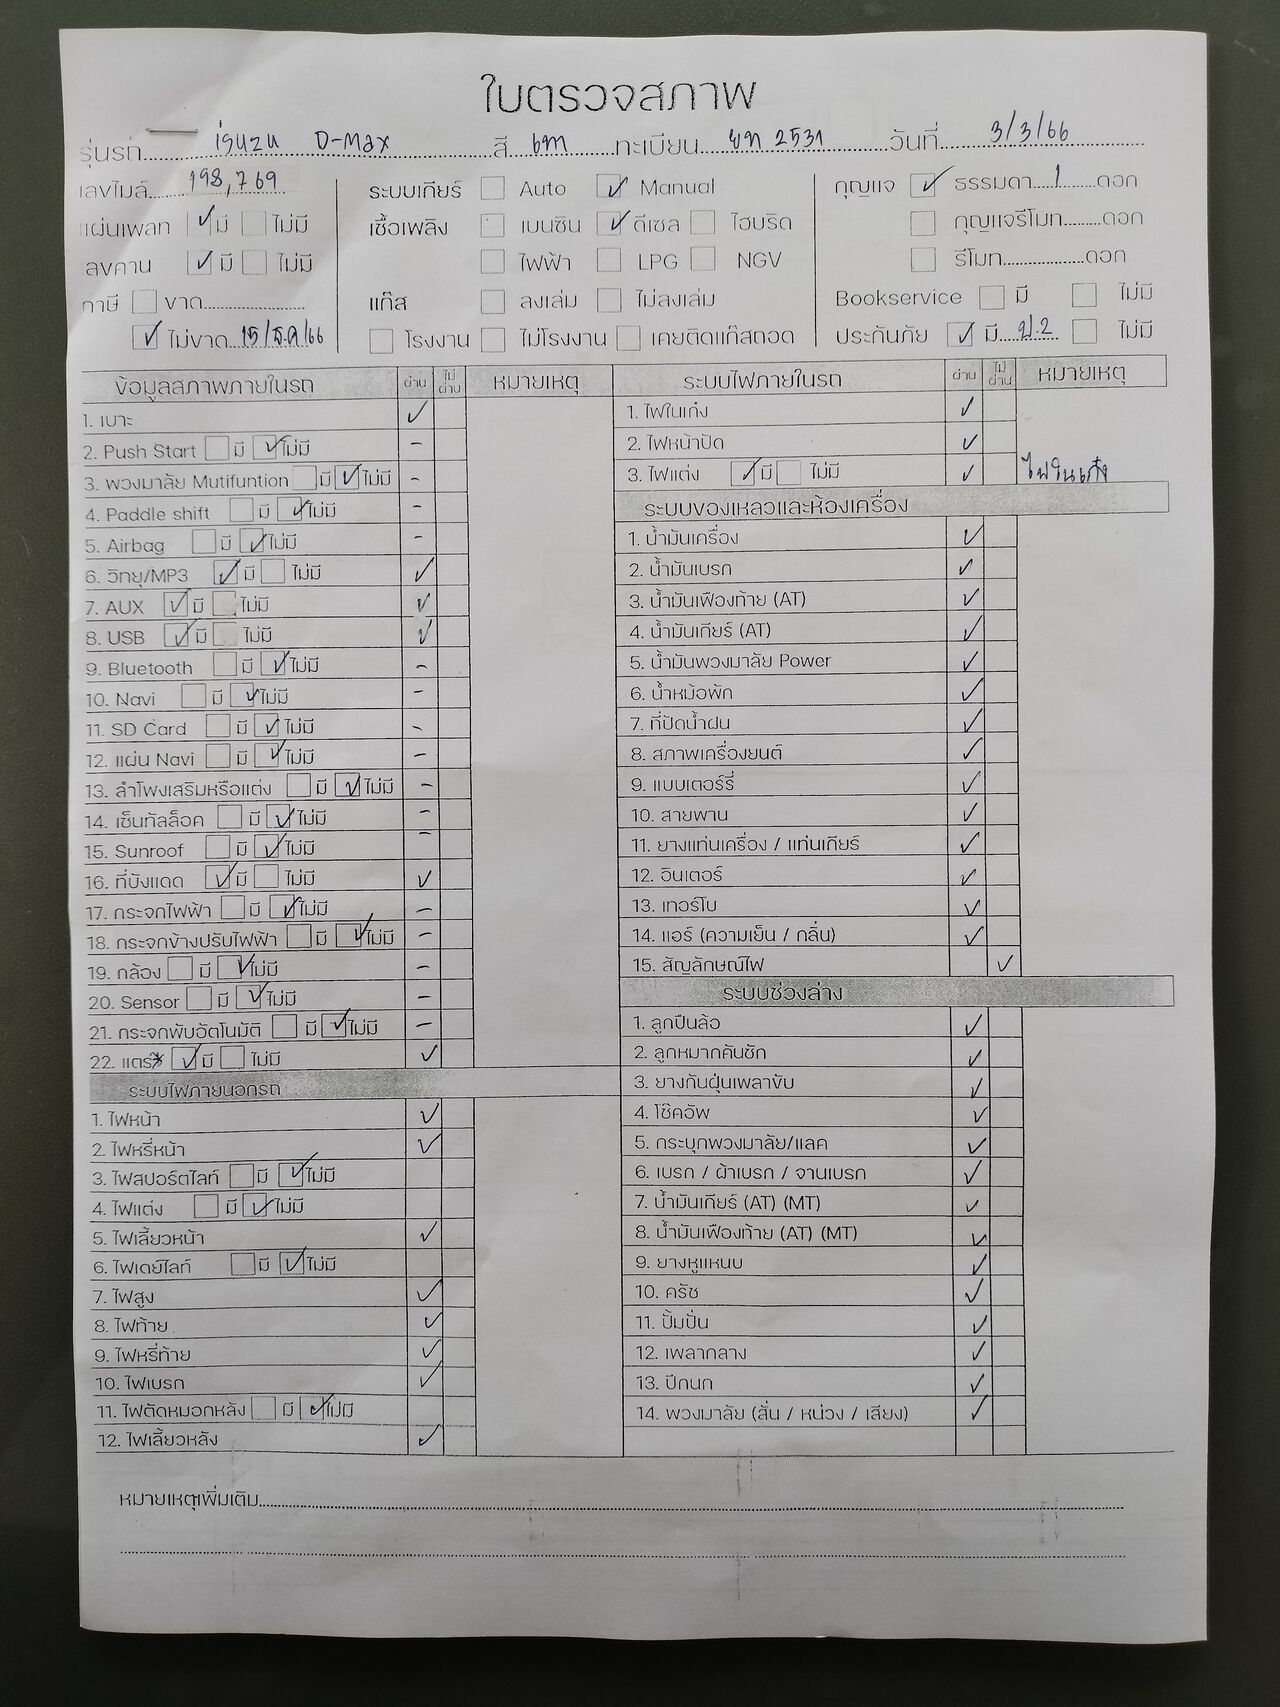 ใบตรวจสภาพ
รุ่นรถ isuzu D-Max สี เทา ทะเบียน ยท 2531 วันที่ 3/3/66
เลขไมล์ 198,769
แผ่นเพลท ✓ มี ไม่มี
ลงคาน ✓ มี ไม่มี
ภาษี ขาด
✓ ไม่ขาด 15/ธ.ค/66
ระบบเกียร์ Auto ✓ Manual
เชื้อเพลิง เบนซิน ✓ ดีเซล ไฮบริด
ไฟฟ้า LPG NGV
แก๊ส ลงเล่ม ไม่ลงเล่ม
โรงงาน ไม่โรงงาน เคยติดแก๊สถอด
กุญแจ ✓ ธรรมดา 1 ดอก
กุญแจรีโมท ดอก
รีโมท ดอก
Bookservice มี ไม่มี
ประกันภัย ✓ มี ป.2 ไม่มี
ข้อมูลสภาพภายในรถ ผ่าน ไม่ผ่าน หมายเหตุ
1. เบาะ ✓
2. Push Start มี ✓ ไม่มี -
3. พวงมาลัย Mutifuntion มี ✓ ไม่มี -
4. Paddle shift มี ✓ ไม่มี -
5. Airbag มี ✓ ไม่มี -
6. วิทยุ/MP3 ✓ มี ไม่มี ✓
7. AUX ✓ มี ไม่มี ✓
8. USB ✓ มี ไม่มี ✓
9. Bluetooth มี ✓ ไม่มี -
10. Navi มี ✓ ไม่มี -
11. SD Card มี ✓ ไม่มี -
12. แผ่น Navi มี ✓ ไม่มี -
13. ลำโพงเสริมหรือแต่ง มี ✓ ไม่มี -
14. เซ็นทัลล็อค มี ✓ ไม่มี -
15. Sunroof มี ✓ ไม่มี -
16. ที่บังแดด ✓ มี ไม่มี ✓
17. กระจกไฟฟ้า มี ✓ ไม่มี -
18. กระจกข้างปรับไฟฟ้า มี ✓ ไม่มี -
19. กล้อง มี ✓ ไม่มี -
20. Sensor มี ✓ ไม่มี -
21. กระจกพับอัตโนมัติ มี ✓ ไม่มี -
22. แตร ✓ มี ไม่มี ✓
ระบบไฟภายนอกรถ
1. ไฟหน้า ✓
2. ไฟหรี่หน้า ✓
3. ไฟสปอร์ตไลท์ มี ✓ ไม่มี
4. ไฟแต่ง มี ✓ ไม่มี
5. ไฟเลี้ยวหน้า ✓
6. ไฟเดย์ไลท์ มี ✓ ไม่มี
7. ไฟสูง ✓
8. ไฟท้าย ✓
9. ไฟหรี่ท้าย ✓
10. ไฟเบรก ✓
11. ไฟตัดหมอกหลัง มี ✓ ไม่มี
12. ไฟเลี้ยวหลัง ✓
ระบบไฟภายในรถ ผ่าน ไม่ผ่าน หมายเหตุ
1. ไฟในเก๋ง ✓
2. ไฟหน้าปัด ✓
3. ไฟแต่ง ✓ มี ไม่มี ✓ ไฟในเก๋ง
ระบบของเหลวและห้องเครื่อง
1. น้ำมันเครื่อง ✓
2. น้ำมันเบรก ✓
3. น้ำมันเฟืองท้าย (AT) ✓
4. น้ำมันเกียร์ (AT) ✓
5. น้ำมันพวงมาลัย Power ✓
6. น้ำหม้อพัก ✓
7. ที่ปัดน้ำฝน ✓
8. สภาพเครื่องยนต์ ✓
9. แบบเตอร์รี่ ✓
10. สายพาน ✓
11. ยางแท่นเครื่อง / แท่นเกียร์ ✓
12. อินเตอร์ ✓
13. เทอร์โบ ✓
14. แอร์ (ความเย็น / กลิ่น) ✓
15. สัญลักษณ์ไฟ ✓
ระบบช่วงล่าง
1. ลูกปืนล้อ ✓
2. ลูกหมากคันชัก ✓
3. ยางกันฝุ่นเพลาขับ ✓
4. โช๊คอัพ ✓
5. กระบุกพวงมาลัย/แลค ✓
6. เบรก / ผ้าเบรก / จานเบรก ✓
7. น้ำมันเกียร์ (AT) (MT) ✓
8. น้ำมันเฟืองท้าย (AT) (MT) ✓
9. ยางหูแหนบ ✓
10. ครัช ✓
11. ปั้มปั่น ✓
12. เพลากลาง ✓
13. ปีกนก ✓
14. พวงมาลัย (สั่น / หน่วง / เสียง) ✓
หมายเหตุเพิ่มเติม